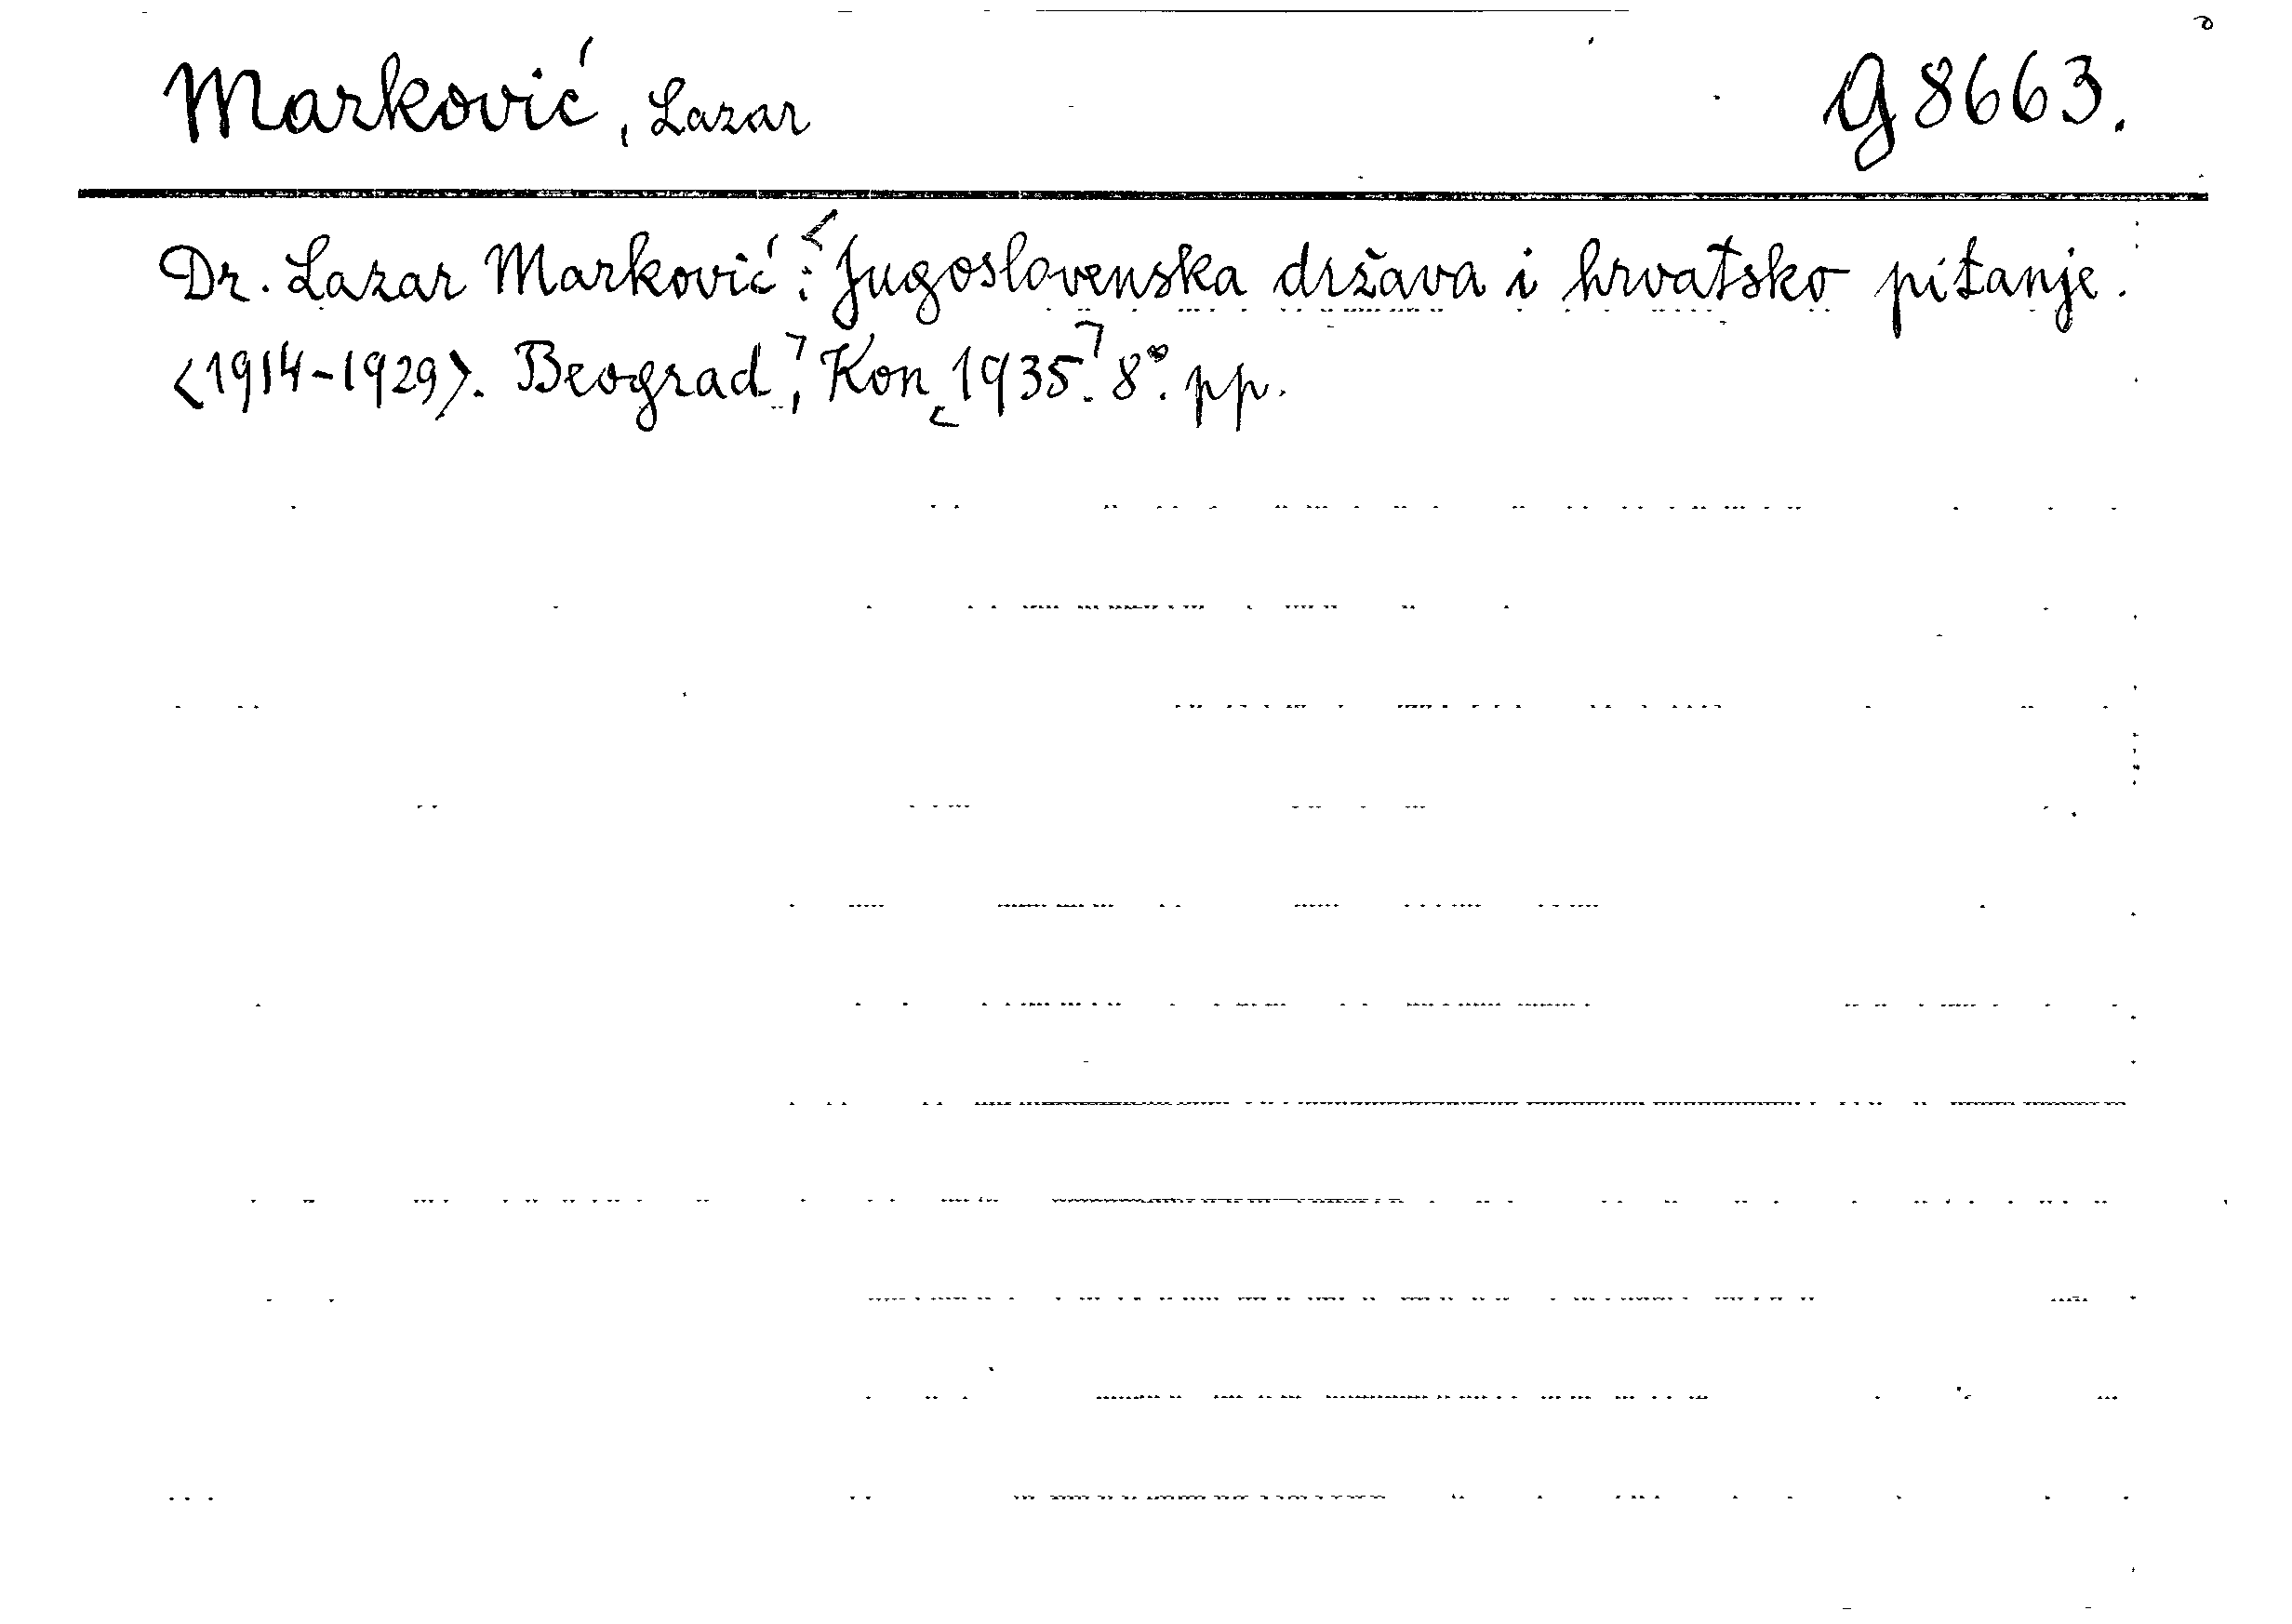 Marković, Lazar G 8663.
Dr. Lazar Marković: Jugoslovenska država i hrvatsko pitanje.
<1914-1929>. Beograd, Kon 1935. 8° pp.